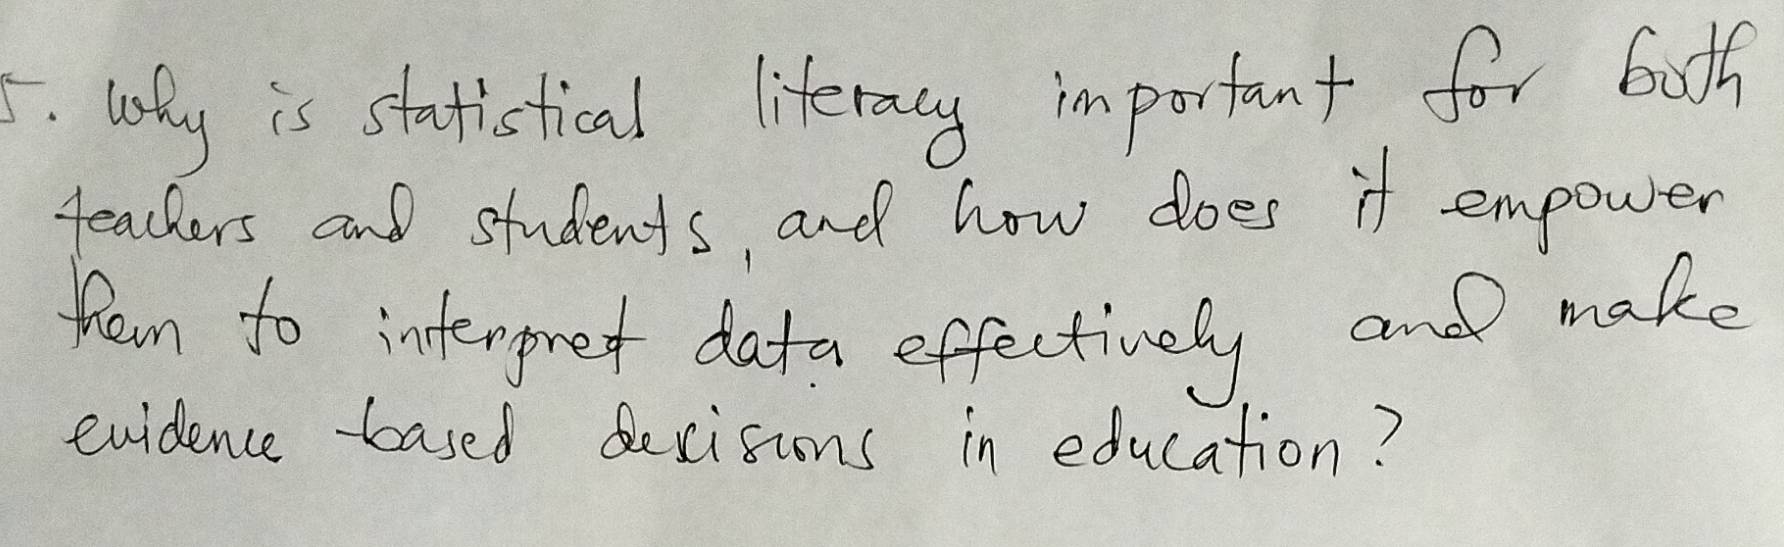 5. Why is statistical literacy important for both
teachers and students, and how does it empower
them to interpret data effectively and make
evidence-based decisions in education?